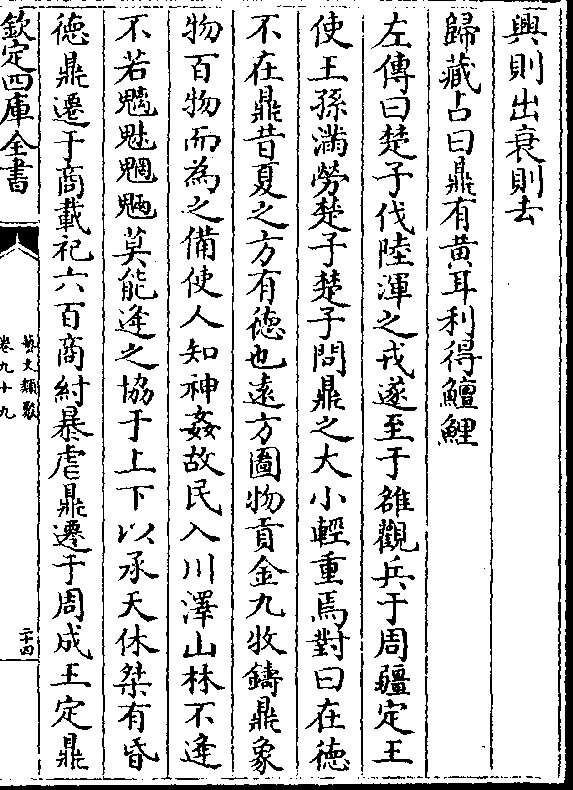 興則出衰則去
歸藏占曰鼎有黄耳利得鱣鯉
左傳曰楚子伐陸渾之戎遂至于雒觀兵于周疆定王
使王孫滿勞楚子楚子問鼎之大小輕重焉對曰在徳
不在鼎昔夏之方有徳也逺方圖物貢金九牧鑄鼎象
物百物而為之備使人知神姦故民入川澤山林不逢
不若魑魅魍魎莫能逢之協于上下以承天休桀有昏
徳鼎遷于商載祀六百商紂暴虐鼎遷于周成王定鼎
欽定四庫全書
藝文類聚
卷九十九
二十四